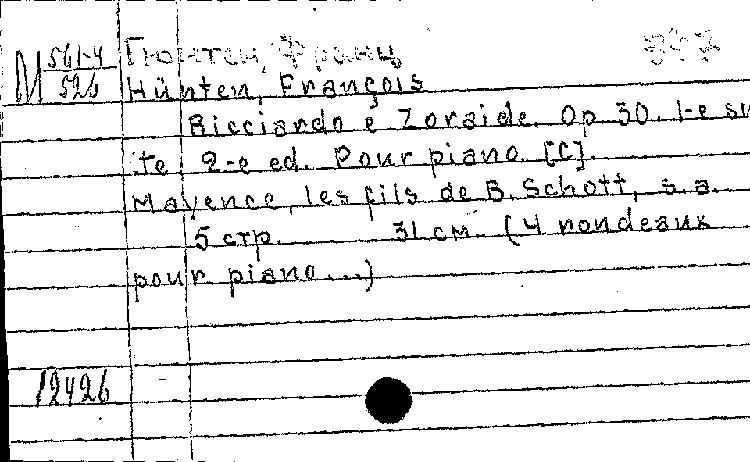 М 561-4/526 Гюнтен, Франц
Hünten, François
Ricciardo e Zoraide. Op 30. 1-e sui
te. 2-e ed. Pour piano. [C].
Mayence, les fils de B. Schott, s. a.
5 стр. 31 см. (4 rondeaux
pour piano...)
12426